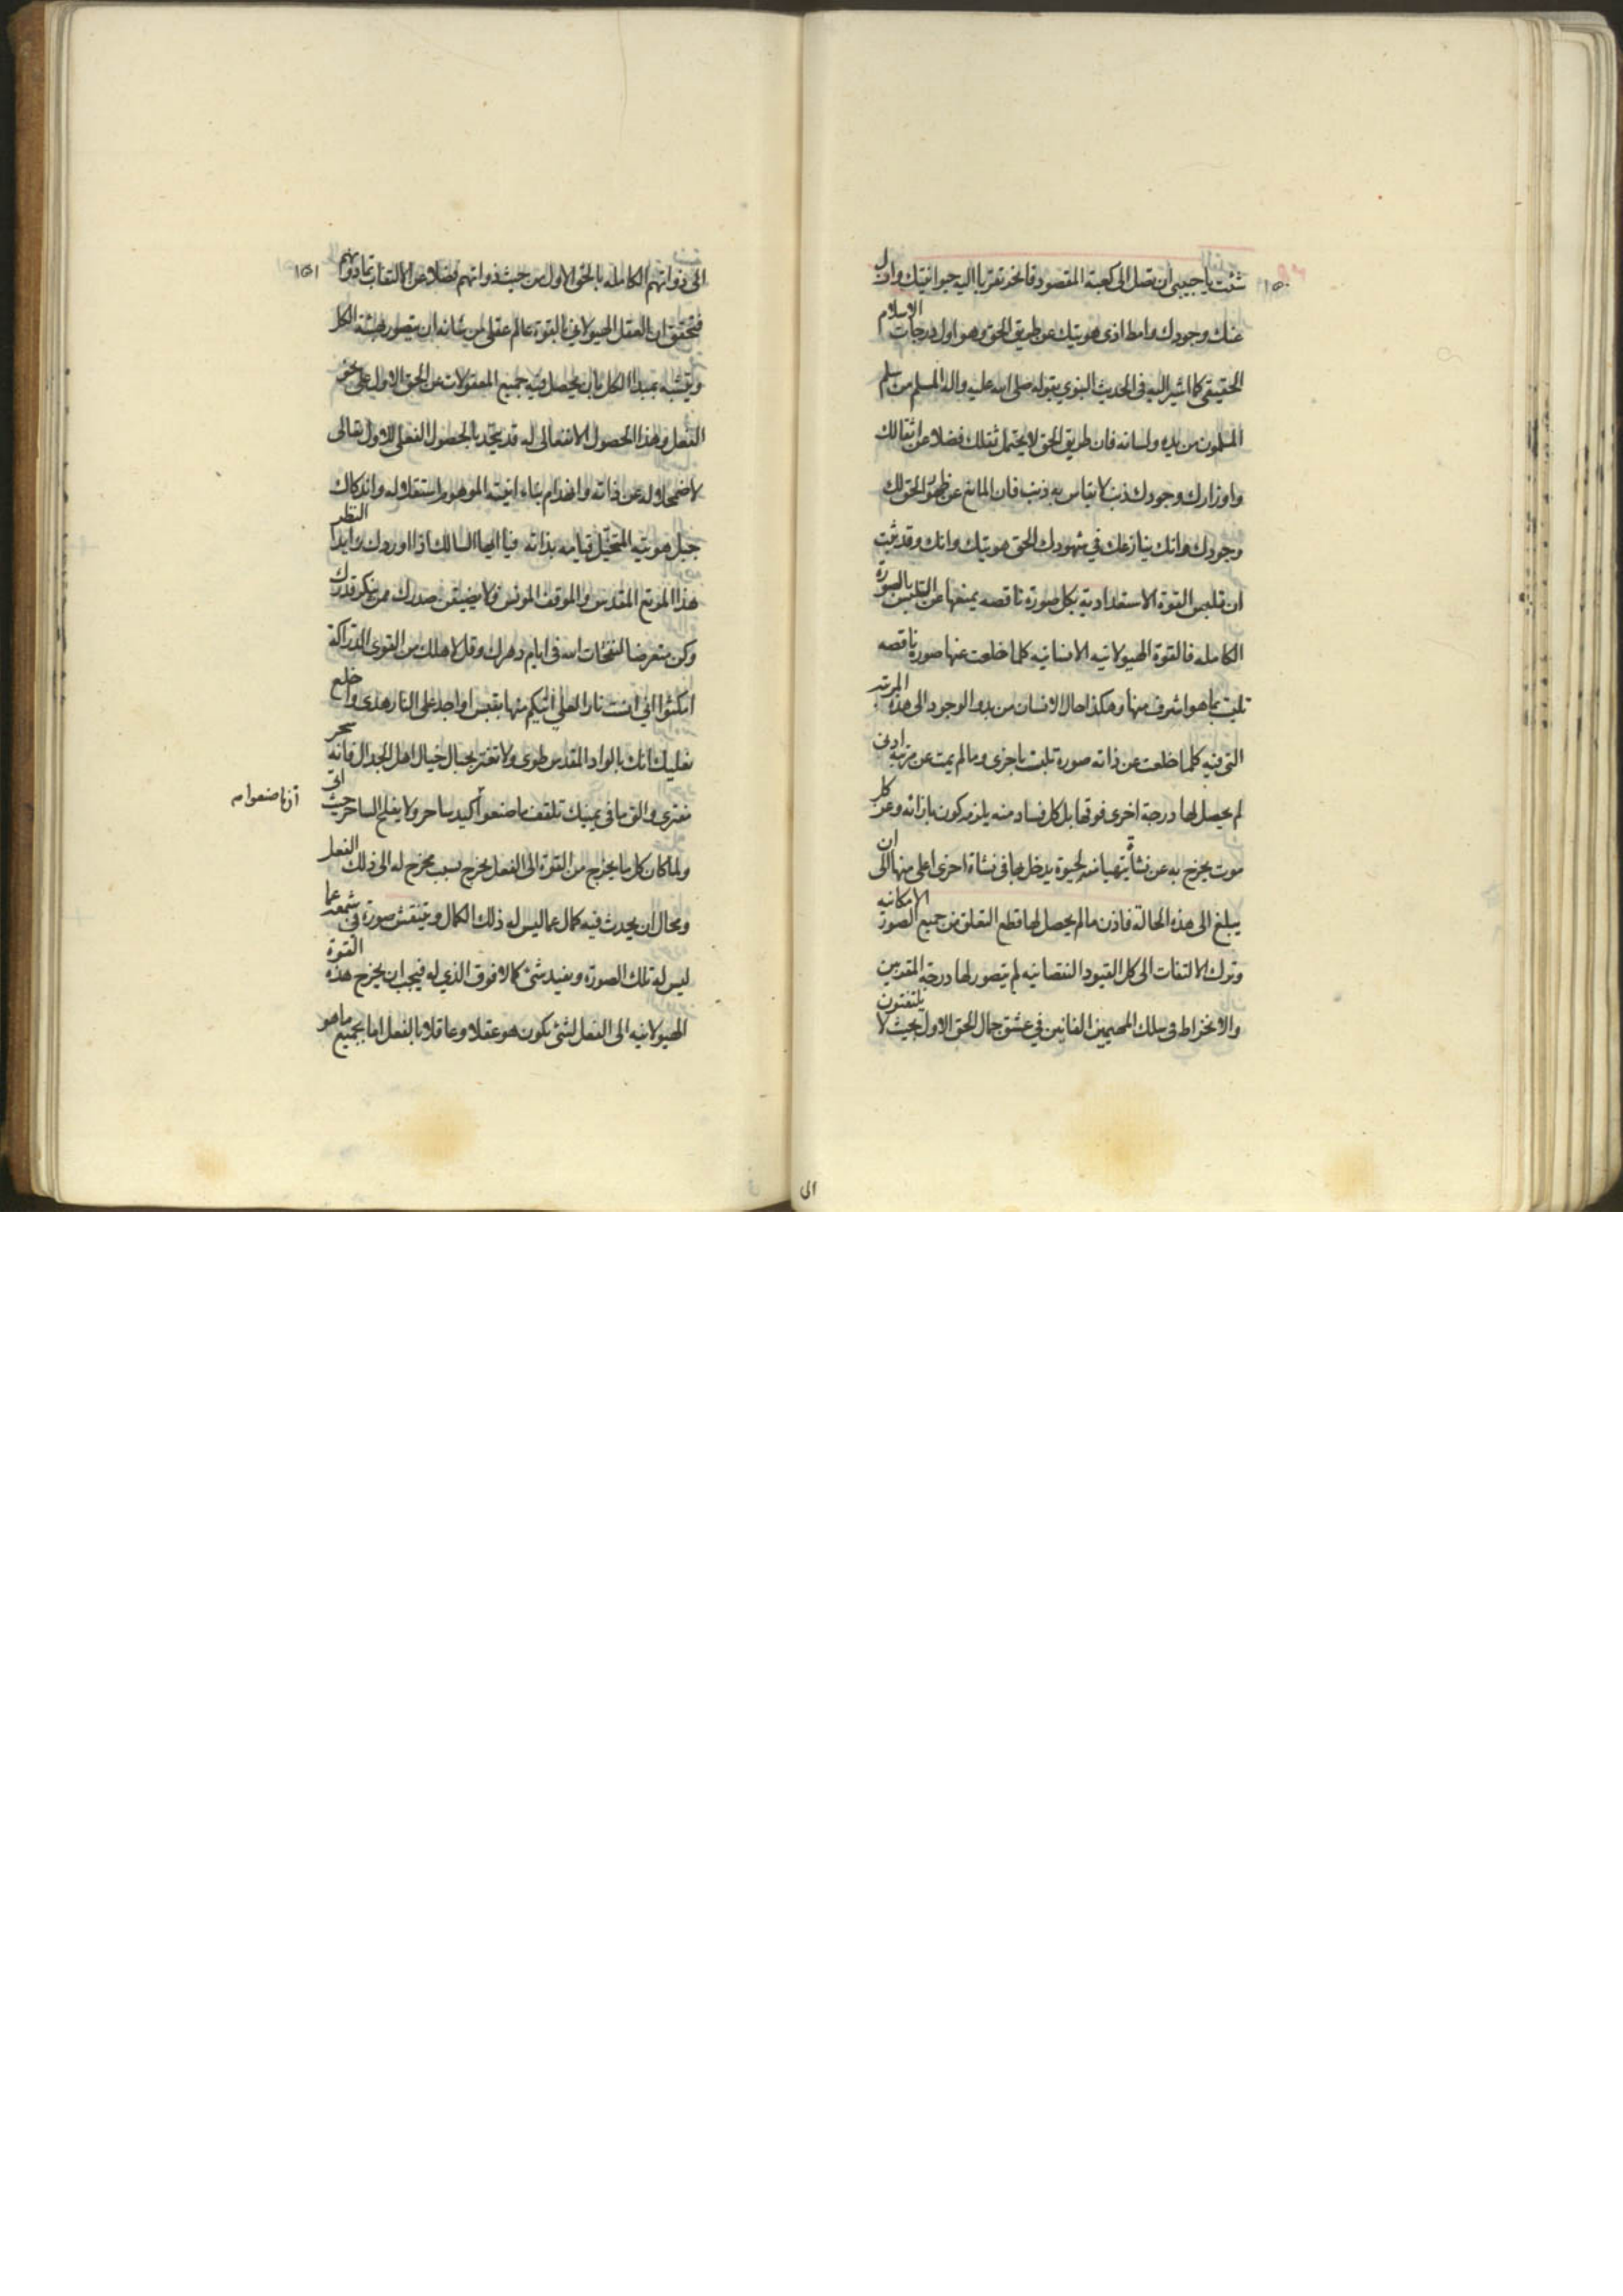 ١٥٠
شئت يا حبيبي ان تصل الى كعبة المقصود فانحر تقربا اليه حيوانيتك وازل
عنك وجودك وامط اذى هويتك عن طريق الحق وهو اول درجات الاسلام
الحقيقي كما اشير اليه في الحديث النبوي بقوله صلى الله عليه واله المسلم من سلم
المسلمون من يده ولسانه فان طريق الحق لا يحتمل ثقلك فضلا عن اثقالك
واوزارك وجودك ذنب لا يقاس به ذنب فان المانع عن ظهور الحق لك
وجودك وانك ينازعك في شهودك الحق هويتك وانك وقد ثبت
ان تلبس القوة الاستعدادية بكل صورة ناقصه يمنعها عن التلبس بالصورة
الكامله فالقوة الهيولانيه الانسانيه كلما خلعت عنها صورة ناقصه
تلبت بما هو اشرف منها وهكذا حال الانسان من بدو الوجود الى هذه المرتبه
التى فيه كلما خلعت عن ذاته صورة تلبت باخرى وما لم يمت عن مرتبه ادنى
لم يحصل لها درجة اخرى فوقها بل كل فساد منه يلزمه كون بازائه وعن كل
موت يخرج به عن نشأة يتهيا منه لحيوة يدخل بها في نشاة اخرى اعلى منها الى ان
يبلغ الى هذه الحالة فاذن ما لم يحصل لها قطع التعلق من جميع الصور الامكانيه
وترك الالتفات الى كل القيود النقصانيه لم يتصور لها درجة المقدسين
والانخراط في سلك المهيمين الفانين في عشق جمال الحق الاول بحيث لا يلتفتون
الى
١٥١
الى ذواتهم الكامله بالحق الاول من حيث ذواتهم فضلا عن الالتفات بما دونهم
فتحقق ان العقل الهيولاني بالقوة عالم عقلي من شانه ان يتصور بهيئة الكل
ويتشبه بمبدا الكل بان يحصل فيه جميع المعقولات عن الحق الاول على نحو
الفعل وهذا الحصول الانفعالى له قد يتحد بالحصول الفعلى للاول تعالى
لاضمحلاله عن ذاته وانهدام بناء انيته الموهوم استقلاله واندكاك
جبل هويته المتخيل قيامه بذاته فيا ايها السالك اذا اوردك رايد النظر
هذا الموقع المقدس والموقف المونس فلا يضيقن صدرك ممن ينكر قدرك
وكن متعرضا لنفحات الله في ايام دهرك وقل لاهلك من القوى الدراكة
امكثوا اني انست نارا لعلي اتيكم منها بقبس او اجد على النار هدى واخلع
نعليك انك بالواد المقدس طوى ولا تغتر بحبال خيال اهل الجدال فانه سحر
مفترى والق ما في يمينك تلقف ما صنعوا كيد ساحر ولا يفلح الساحر حيث اتى
ولما كان كل ما يخرج من القوة الى الفعل يخرج بسبب مخرج له الى ذلك الفعل
ومحال ان يحدث فيه كمال عما ليس له ذلك الكمال وينتقش صورة في شمعه عما
ليس له تلك الصورة ويفيد شئ كمالا فوق الذي له فيجب ان يخرج هذه القوة
الهيولانيه الى الفعل لشئ يكون هو عقلا وعاقلا بالفعل اما بجميع ما هو